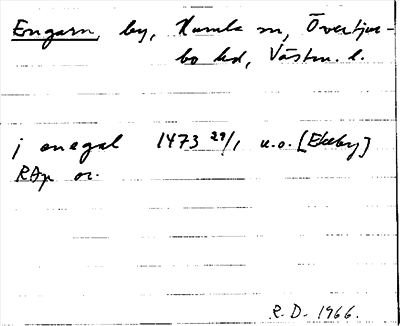 Engarn, by, Kumla sn, Övertjur-
bo hd, Västm. l.
j enegal 1473 29/1 u.o. [Ekeby]
RAp or.
R.D. 1966.